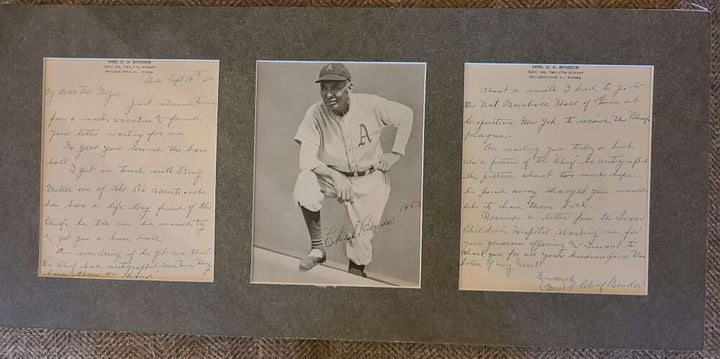 MRS. C. A. BENDER
NO. TWELFTH STREET
PHILADELPHIA 41, PENNA.
Phila Sept. 16th 54
My dear Mr.
Just returned home
from a weeks vacation & found
your letter waiting for me.
So glad you received the base
ball.
I got in touch with Bing
Miller one of the A's coaches who
has been a life long friend of the
Chiefs he told me he would try
& get you a base ball.
Am wondering if he got one that
the Chief had autographed
A
A
Chief Bender
1953
MRS. C. A. BENDER
NO. TWELFTH STREET
PHILADELPHIA 41, PENNA.
About a month I had to go to
the Nat Baseball Hall of Fame at
Cooperstown New York to receive the Chiefs
plaque.
Am mailing you today a book
also a picture of the Chief he autographed
this picture about two weeks before
he passed away thought you would
like to have them both.
Received a letter from the
Children's Hospital thanking me for
your generous offering & I want to
thank you for all your kindness from the
bottom of my heart.
Sincerely
(Mrs) Chief Bender